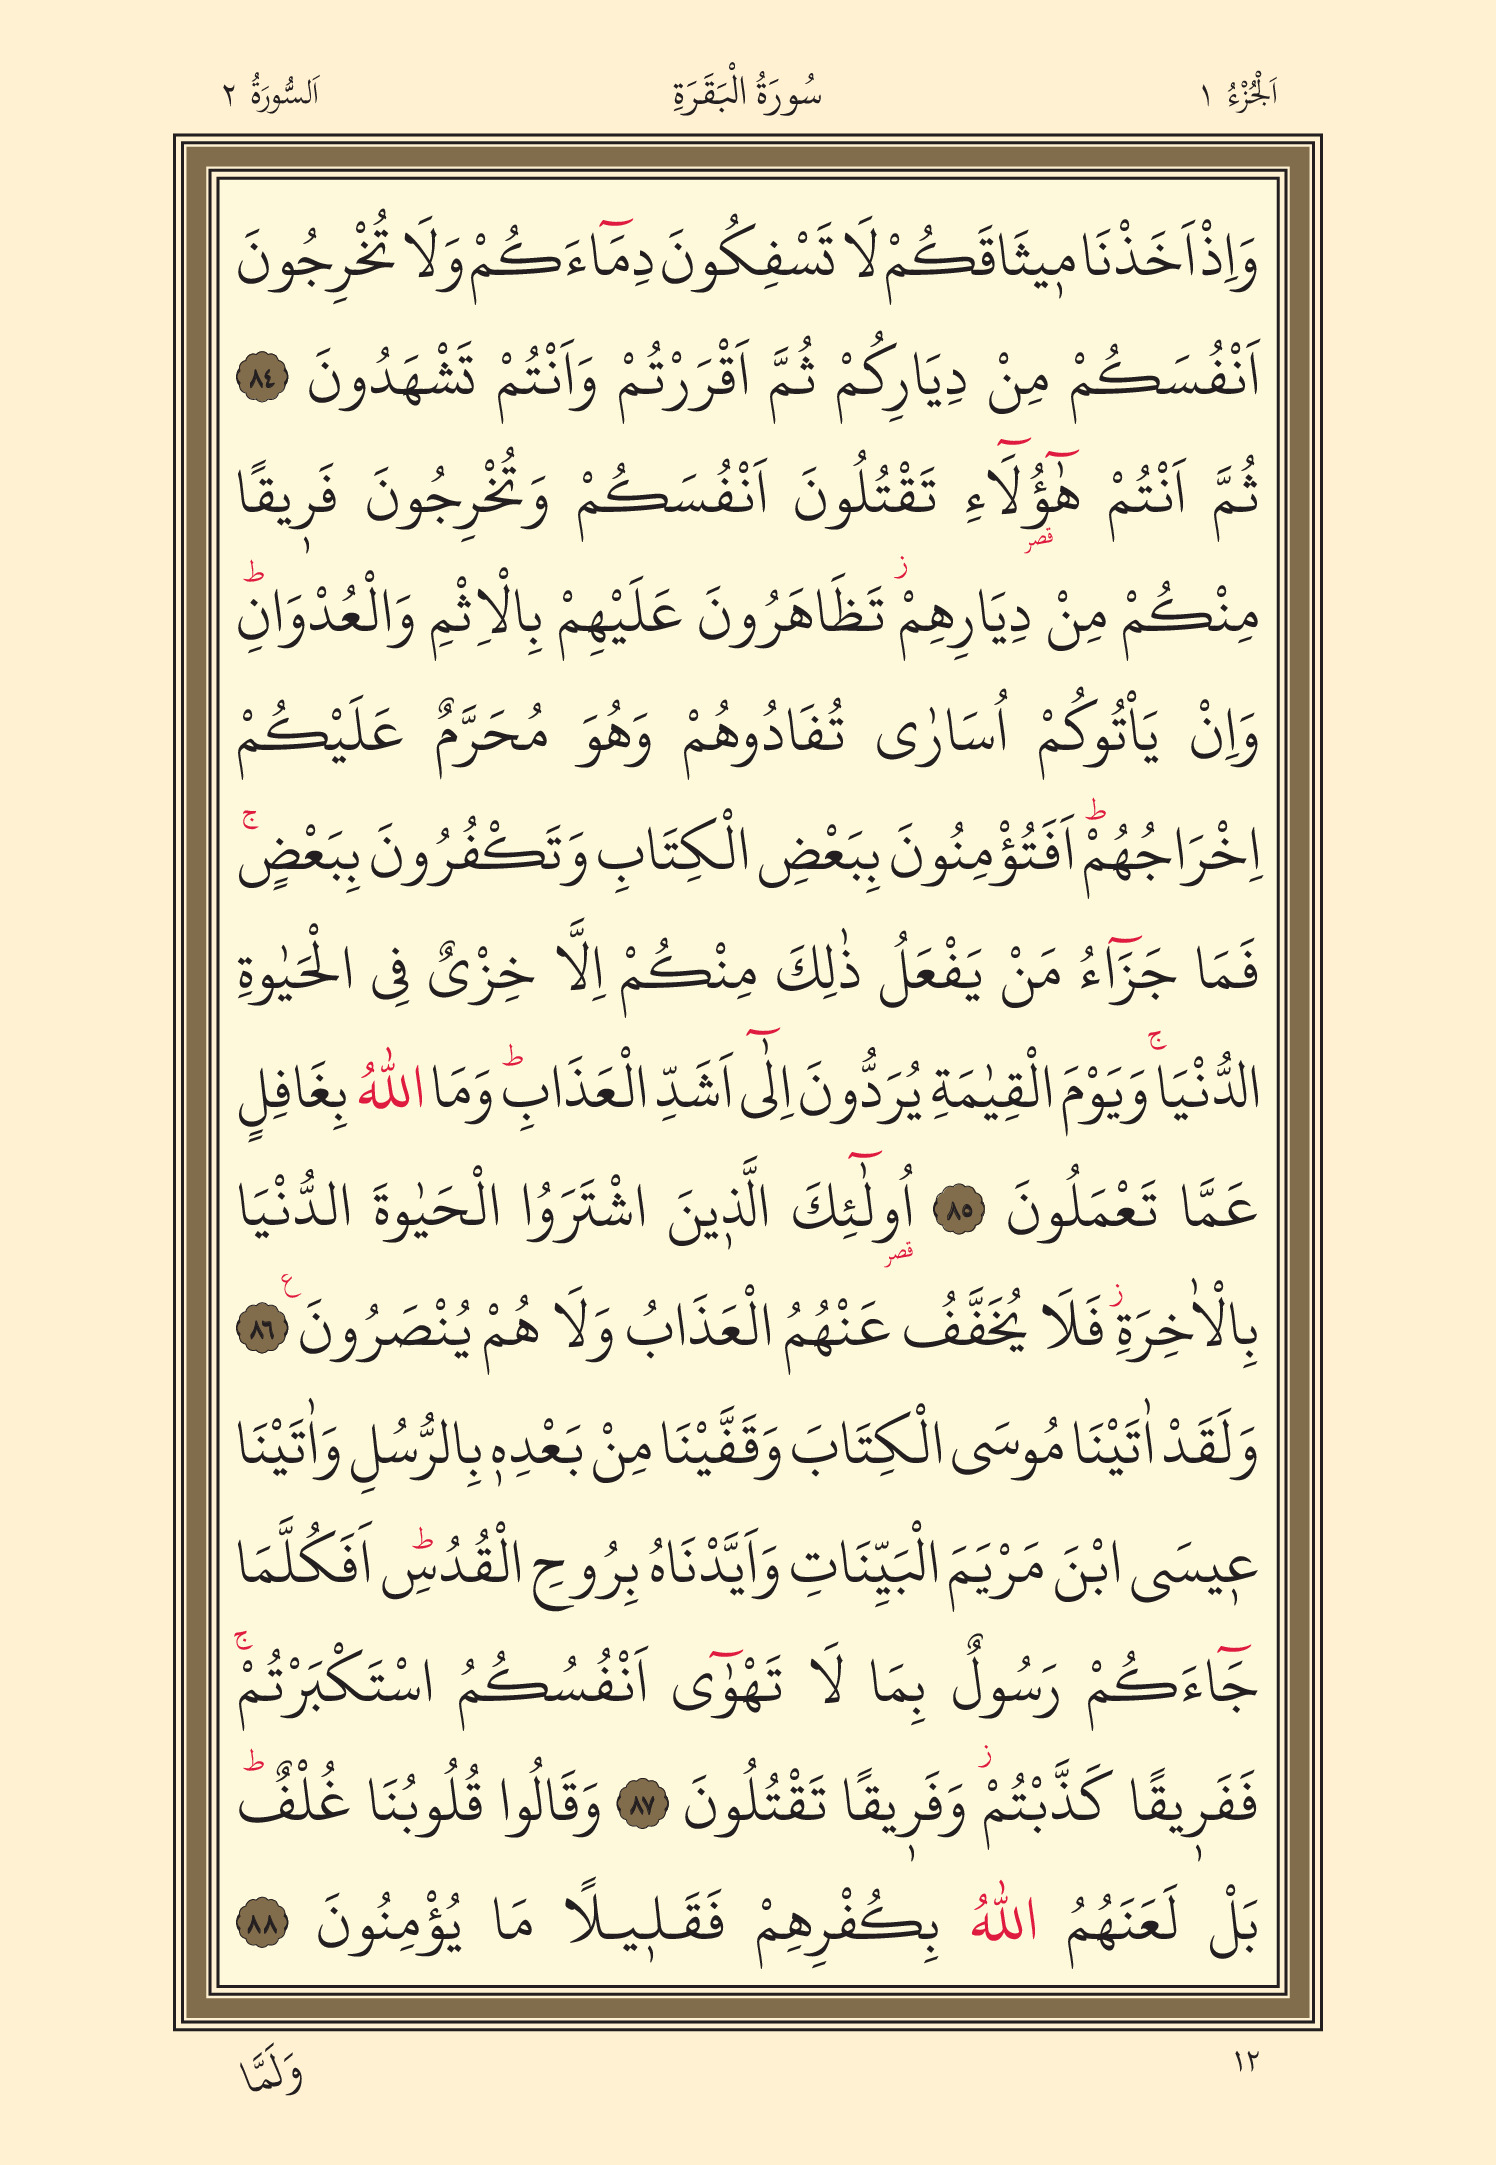 اَلْجُزْءُ ١
سُورَةُ الْبَقَرَةِ
اَلسُّورَةُ ٢
وَاِذْ اَخَذْنَا م۪يثَاقَكُمْ لَا تَسْفِكُونَ دِمَٓاءَكُمْ وَلَا تُخْرِجُونَ
اَنْفُسَكُمْ مِنْ دِيَارِكُمْ ثُمَّ اَقْرَرْتُمْ وَاَنْتُمْ تَشْهَدُونَ ٨٤
ثُمَّ اَنْتُمْ هٰٓؤُ۬لَٓاءِ تَقْتُلُونَ اَنْفُسَكُمْ وَتُخْرِجُونَ فَر۪يقًا
قصر
مِنْكُمْ مِنْ دِيَارِهِمْۘ تَظَاهَرُونَ عَلَيْهِمْ بِالْاِثْمِ وَالْعُدْوَانِۜ
وَاِنْ يَاْتُوكُمْ اُسَارٰى تُفَادُوهُمْ وَهُوَ مُحَرَّمٌ عَلَيْكُمْ
اِخْرَاجُهُمْۜ اَفَتُؤْمِنُونَ بِبَعْضِ الْكِتَابِ وَتَكْفُرُونَ بِبَعْضٍۚ
فَمَا جَزَٓاءُ مَنْ يَفْعَلُ ذٰلِكَ مِنْكُمْ اِلَّا خِزْىٌ فِى الْحَيٰوةِ
الدُّنْيَاۚ وَيَوْمَ الْقِيٰمَةِ يُرَدُّونَ اِلٰٓى اَشَدِّ الْعَذَابِۜ وَمَا اللّٰهُ بِغَافِلٍ
عَمَّا تَعْمَلُونَ ٨٥ اُولٰٓئِكَ الَّذ۪ينَ اشْتَرَوُا الْحَيٰوةَ الدُّنْيَا
قصر
بِالْاٰخِرَةِۘ فَلَا يُخَفَّفُ عَنْهُمُ الْعَذَابُ وَلَا هُمْ يُنْصَرُونَ ع ٨٦
وَلَقَدْ اٰتَيْنَا مُوسَى الْكِتَابَ وَقَفَّيْنَا مِنْ بَعْدِه۪ بِالرُّسُلِ وَاٰتَيْنَا
ع۪يسَى ابْنَ مَرْيَمَ الْبَيِّنَاتِ وَاَيَّدْنَاهُ بِرُوحِ الْقُدُسِۜ اَفَكُلَّمَا
جَٓاءَكُمْ رَسُولٌ بِمَا لَا تَهْوٰٓى اَنْفُسُكُمُ اسْتَكْبَرْتُمْۚ
فَفَر۪يقًا كَذَّبْتُمْۘ وَفَر۪يقًا تَقْتُلُونَ ٨٧ وَقَالُوا قُلُوبُنَا غُلْفٌۜ
بَلْ لَعَنَهُمُ اللّٰهُ بِكُفْرِهِمْ فَقَل۪يلًا مَا يُؤْمِنُونَ ٨٨
١٢
وَلَمَّا